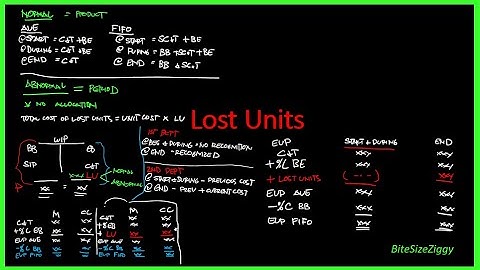 NORMAL = PRODUCT
AVE
@START = C&T + BE
@DURING = C&T + BE
@END = C&T
FIFO
@START = SC&T + BE
@DURING = BB + SC&T + BE
@END = BB + SC&T
ABNORMAL = PERIOD
NO ALLOCATION
TOTAL COST OF LOST UNITS = UNIT COST X LU
Lost Units
WIP
BB
EB
SIP
C&T
LU
NORMAL
ABNORMAL
XX
XX
1ST DEPT
@BEG & DURING = NO RECOGNITION
@END - RECOGNIZED
2ND DEPT
@START & DURING - PREVIOUS COST
@END - PREV + CURRENT COST
M
CC
C&T
+%C BE
EUP AVE
-%C BB
EUP FIFO
M
CC
C&T
+%EB
+ LU
EUP AVE
-%C BB
EUP FIFO
EUP
START & DURING
END
C&T
XX
XX
+%C BE
XX
XX
+ LOST UNITS
(---)
XX
EUP AVE
XX
XX
-%C BB
XX
XX
EUP FIFO
XX
XX
BiteSizeZiggy